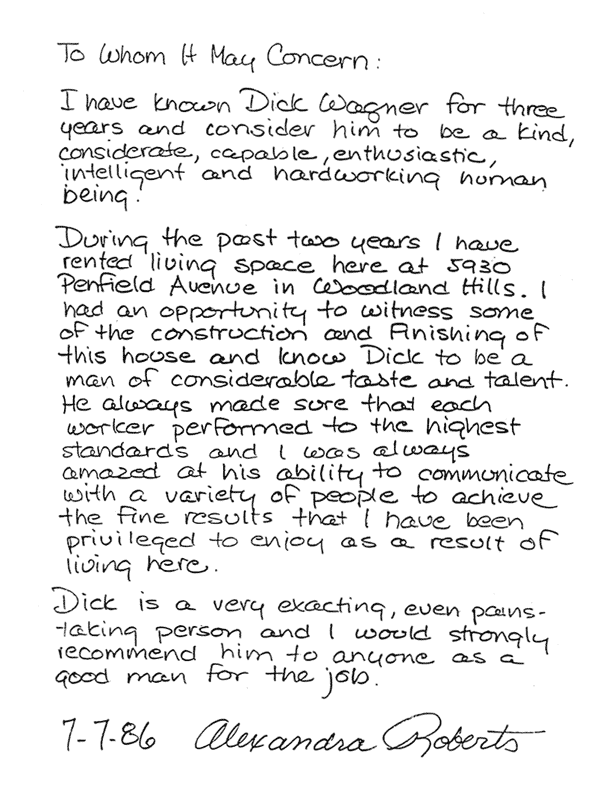 To Whom It May Concern:
I have known Dick Wagner for three
years and consider him to be a kind,
considerate, capable, enthusiastic,
intelligent and hardworking human
being.
During the past two years I have
rented living space here at 5930
Penfield Avenue in Woodland Hills. I
had an opportunity to witness some
of the construction and finishing of
this house and know Dick to be a
man of considerable taste and talent.
He always made sure that each
worker performed to the highest
standards and I was always
amazed at his ability to communicate
with a variety of people to achieve
the fine results that I have been
privileged to enjoy as a result of
living here.
Dick is a very exacting, even pains-
taking person and I would strongly
recommend him to anyone as a
good man for the job.
7-7-86 Alexandra Roberts